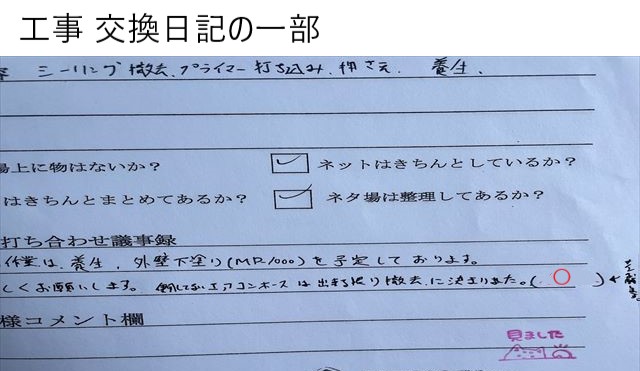 工事 交換日記の一部
シーリング撤去、プライマー打ち込み、押さえ、養生、
場上に物はないか？ ネットはきちんとしているか？
はきちんとまとめてあるか？ ネタ場は整理してあるか？
打ち合わせ議事録
作業は、養生、外壁下塗り(MR1000)を予定しております。
しくお願いします。 エアコンホースは出来る限り撤去に決まりました。(○)
様コメント欄
見ました